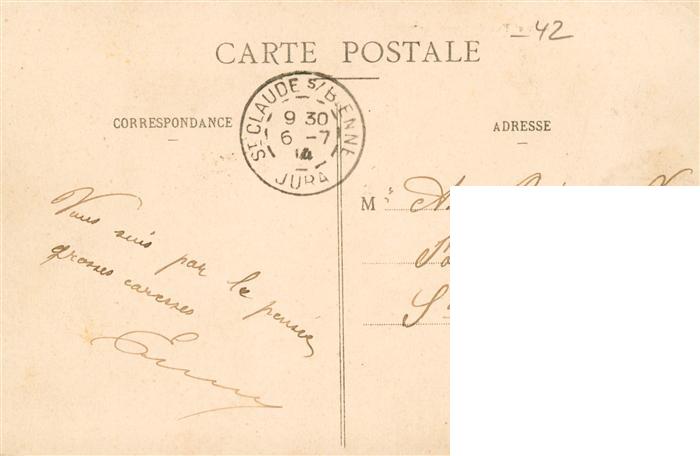 -42
CARTE POSTALE
ST CLAUDE S/BIENNE
9 30
6 -7
14
JURA
CORRESPONDANCE
ADRESSE
M
Vous suis par la pensée
grosses caresses